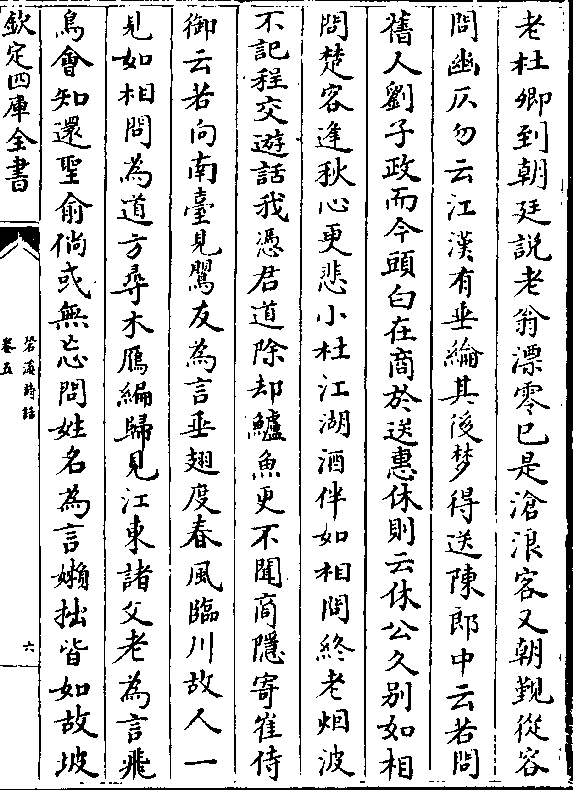 老杜卿到朝廷説老翁漂零已是滄浪客又朝覲從容
問幽仄勿云江漢有垂綸其後梦得送陳郎中云若問
舊人劉子政而今頭白在商於送惠休則云休公久别如相
問楚客逢秋心更悲小杜江湖酒伴如相問終老烟波
不記程交遊話我憑君道除却鱸魚更不聞商隱寄崔侍
御云若向南臺見鸎友為言垂翅度春風臨川故人一
見如相問為道方尋木鴈編歸見江東諸父老為言飛
鳥會知還聖俞倘或無忘問姓名為言嬾拙皆如故坡
欽定四庫全書
䂬溪詩話
卷五
六